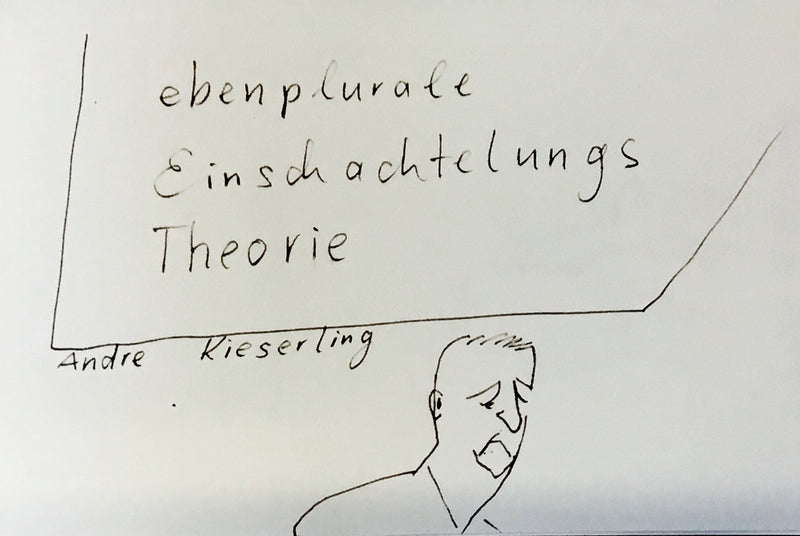 ebenplurale
Einschachtelungs
Theorie
Andre Kieserling